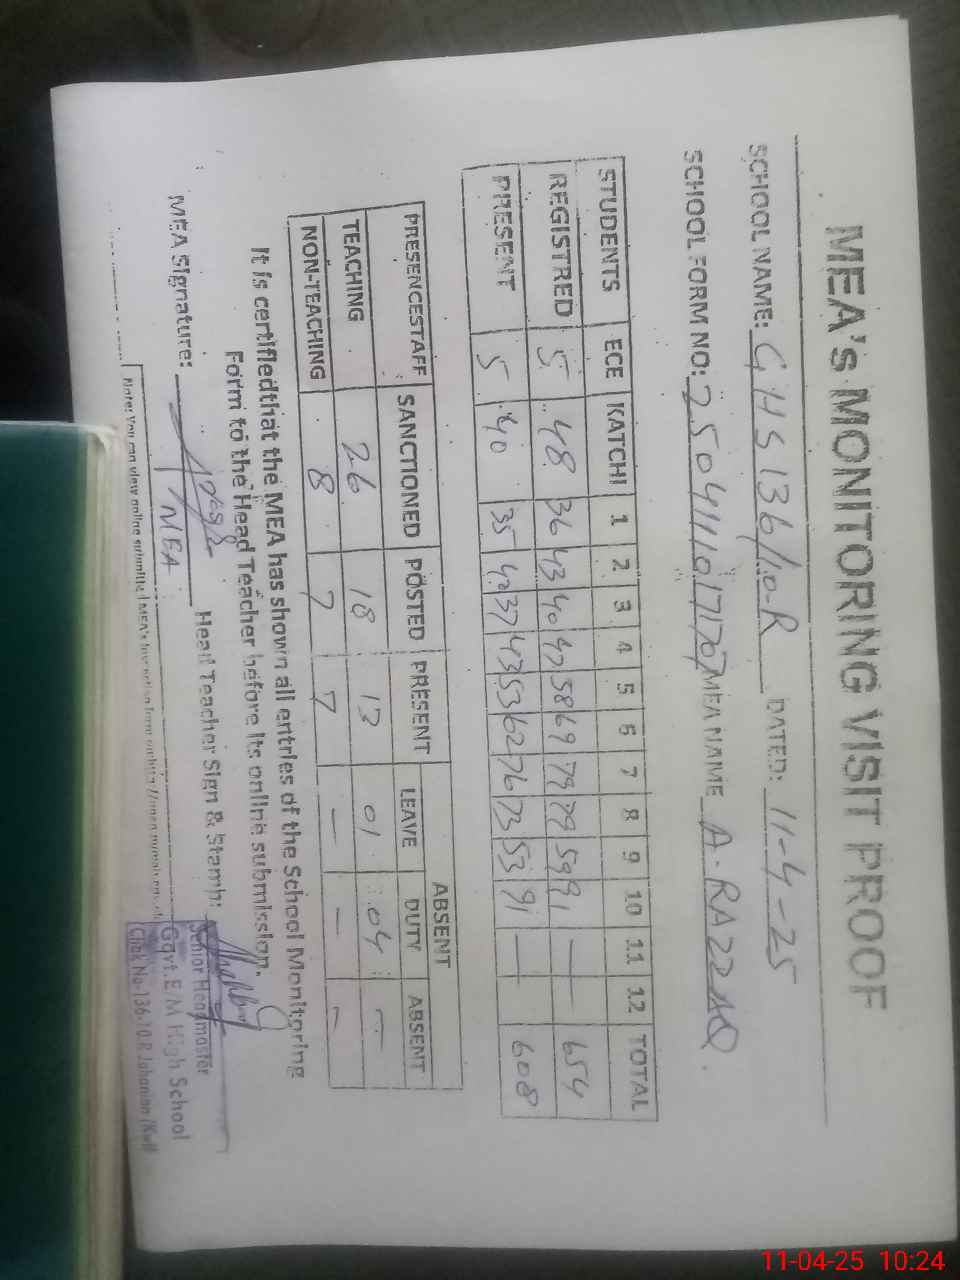 MEA's MONITORING VISIT PROOF
SCHOOL NAME: GHS 136/10-R DATED: 11-4-25
SCHOOL FORM NO: MEA NAME A. RAZZAQ
STUDENTS ECE KATCHI 1 2 3 4 5 6 7 8 9 10 11 12 TOTAL
REGISTRED 5 48 36 43 40 47 58 69 79 79 59 91 — — 654
PRESENT 5 40 35 37 43 53 62 76 73 53 91 — 608
ABSENT
PRESENCESTAFF SANCTIONED POSTED PRESENT LEAVE DUTY ABSENT
TEACHING 26 18 13 01 04 –
NON-TEACHING 8 7 7 — — –
It is certifiedthat the MEA has shown all entries of the School Monitoring
Form to the Head Teacher before its online submission.
MEA Signature: Head Teacher Sign & Stamb:
MEA
Senior Headmaster
Govt. E M High School
Chak No-136.10.R Jahanian (Kwl)
Note: You can view online submitted MEA's
11-04-25 10:24